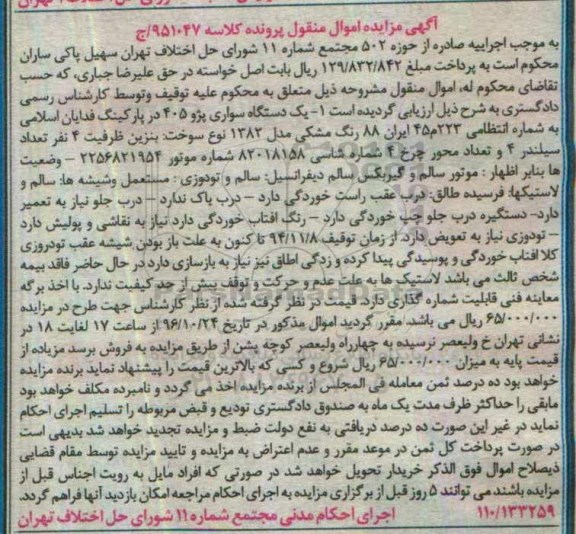 آگهی مزایده اموال منقول پرونده کلاسه ۹۵۱۰۴۷/ج
به موجب اجراییه صادره از حوزه ۵۰۲ مجتمع شماره ۱۱ شورای حل اختلاف تهران سهیل پاکی ساران
محکوم است به پرداخت مبلغ ۱۲۹/۸۳۲/۸۴۲ ریال بابت اصل خواسته در حق علیرضا جباری، که حسب
تقاضای محکوم له، اموال منقول مشروحه ذیل متعلق به محکوم علیه توقیف وتوسط کارشناس رسمی
دادگستری به شرح ذیل ارزیابی گردیده است ۱- یک دستگاه سواری پژو ۴۰۵ در پارکینگ فدایان اسلامی
به شماره انتظامی ۲۲۳م۴۵ ایران ۸۸ رنگ مشکی مدل ۱۳۸۲ نوع سوخت: بنزین ظرفیت ۴ نفر تعداد
سیلندر ۴ و تعداد محور چرخ ۴ شماره شاسی ۸۲۰۱۸۱۵۸ شماره موتور ۲۲۵۶۸۲۱۹۵۴ – وضعیت
ها بنابر اظهار : موتور سالم و گیربکس سالم دیفرانسیل: سالم و تودوزی : مستعمل وشیشه ها: سالم و
لاستیکها: فرسیده طالق: درب عقب راست خوردگی دارد – درب باک ندارد – درب جلو نیاز به تعمیر
دارد- دستگیره درب جلو چپ خوردگی دارد – رنگ افتاب خوردگی دارد نیاز به نقاشی و پولیش دارد
– تودوزی نیاز به تعویض دارد. از زمان توقیف ۹۴/۱۱/۸ تا کنون به علت باز بودن شیشه عقب تودروزی
کلا افتاب خوردگی و پوسیدگی پیدا کرده و زدگی اطلاق نیز نیاز به بازسازی دارد در حال حاضر فاقد بیمه
شخص ثالث می باشد لاستیک ها به علت عدم و حرکت و توقف بیش از حد کیفیت ندارد. با اخذ برگه
معاینه فنی قابلیت شماره گذاری دارد. قیمت در نظر گرفته شده از نظر کارشناس جهت طرح در مزایده
۶۵/۰۰۰/۰۰۰ ریال می باشد. مقرر گردید اموال مذکور در تاریخ ۹۶/۱۰/۲۴ از ساعت ۱۷ لغایت ۱۸ در
نشانی تهران خ ولیعصر نرسیده به چهارراه ولیعصر کوچه پشن از طریق مزایده به فروش برسد مزیاده از
قیمت پایه به میزان ۶۵/۰۰۰/۰۰۰ ریال شروع و کسی که بالاترین قیمت را پیشنهاد نماید برنده مزایده
خواهد بود ده درصد ثمن معامله فی المجلس از برنده مزایده اخذ می گردد و نامبرده مکلف خواهد بود
مابقی را حداکثر ظرف مدت یک ماه به صندوق دادگستری تودیع و قبض مربوطه را تسلیم اجرای احکام
نماید در غیر این صورت ده درصد دریافتی به نفع دولت ضبط و مزایده تجدید خواهد شد بدیهی است
در صورت پرداخت کل ثمن در موعد مقرر و عدم اعتراض به مزایده و تایید مزایده توسط مقام قضایی
ذیصلاح اموال فوق الذکر خریدار تحویل خواهد شد در صورتی که افراد مایل به رویت اجناس قبل از
مزایده باشند می توانند ۵ روز قبل از برگزاری مزایده به اجرای احکام مراجعه امکان بازدید آنها فراهم گردد.
۱۱۰/۱۳۳۲۵۹ اجرای احکام مدنی مجتمع شماره ۱۱ شورای حل اختلاف تهران